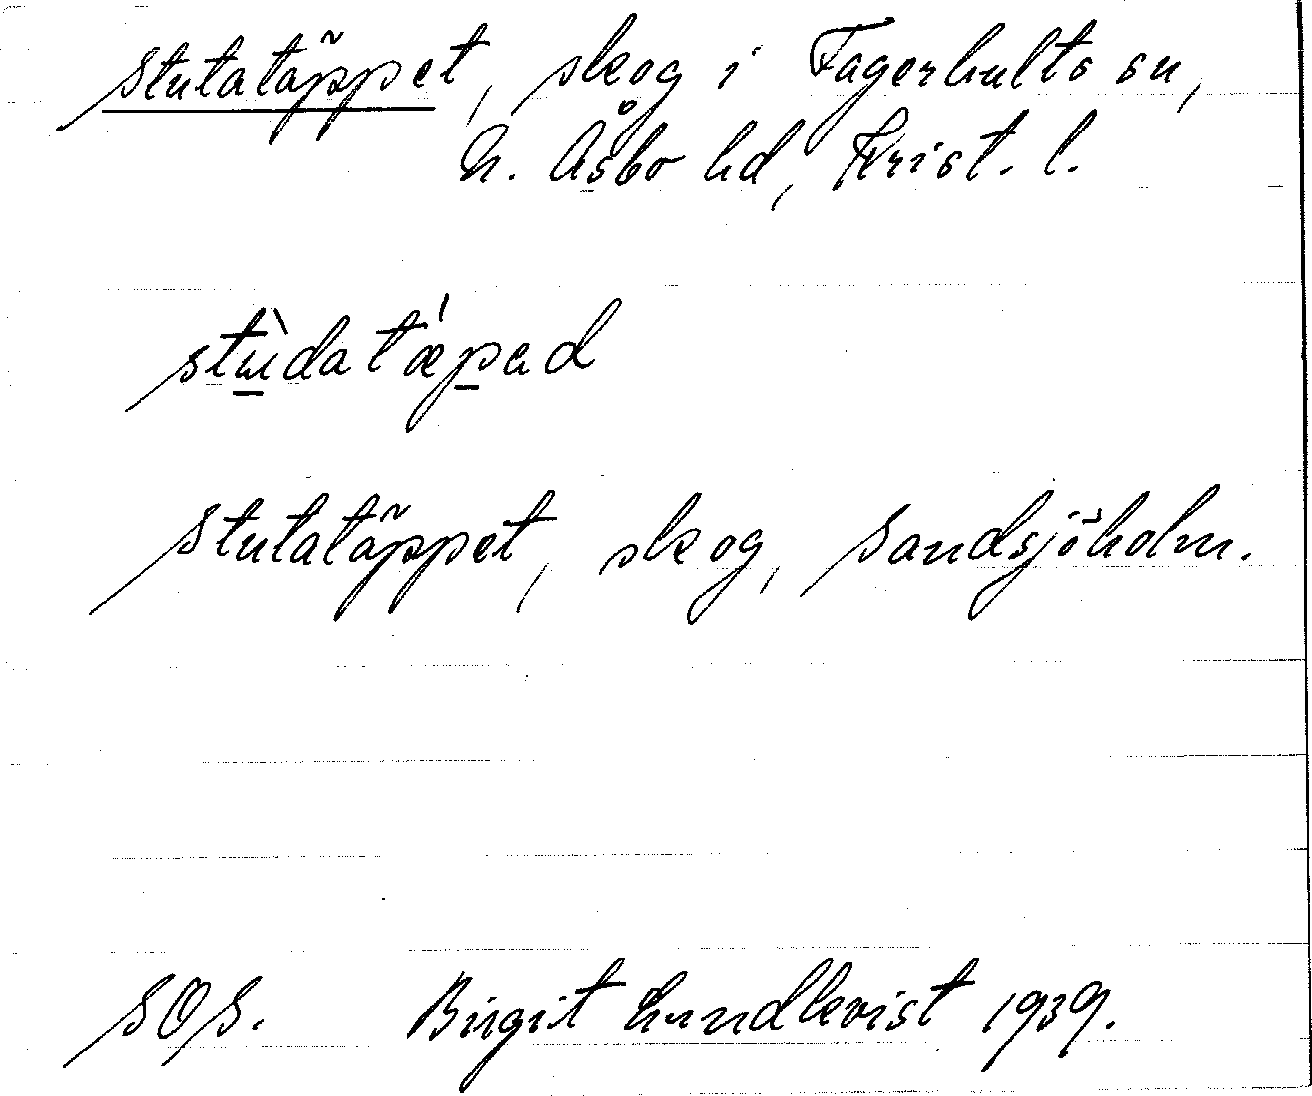 Stutatäppet, skog i Fagerhults sn,
N. Åsbo hd, Krist. l.
stùdatǽpad
Stutatäppet, skog, Sandsjöholm.
SOS. Birgit Lundkvist 1939.